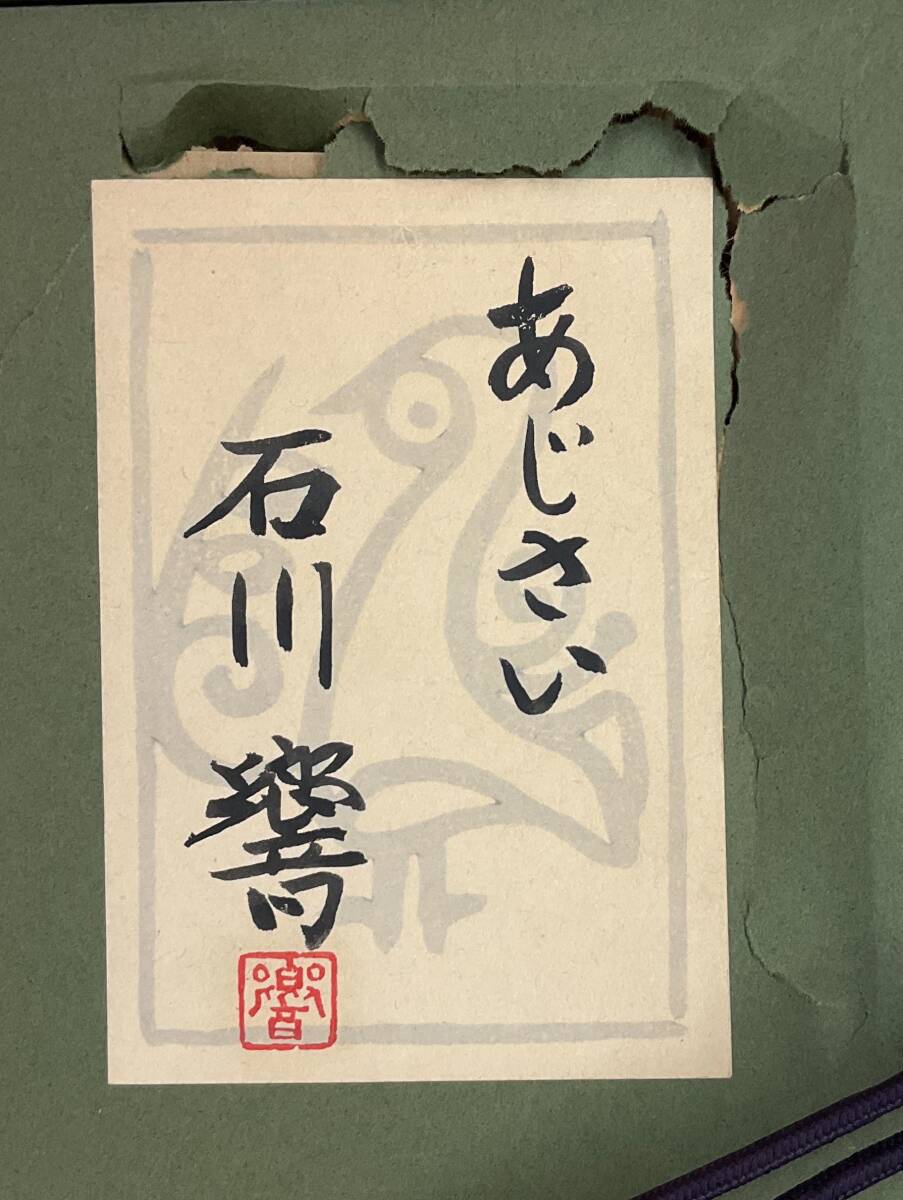 あじさい
石川響
響